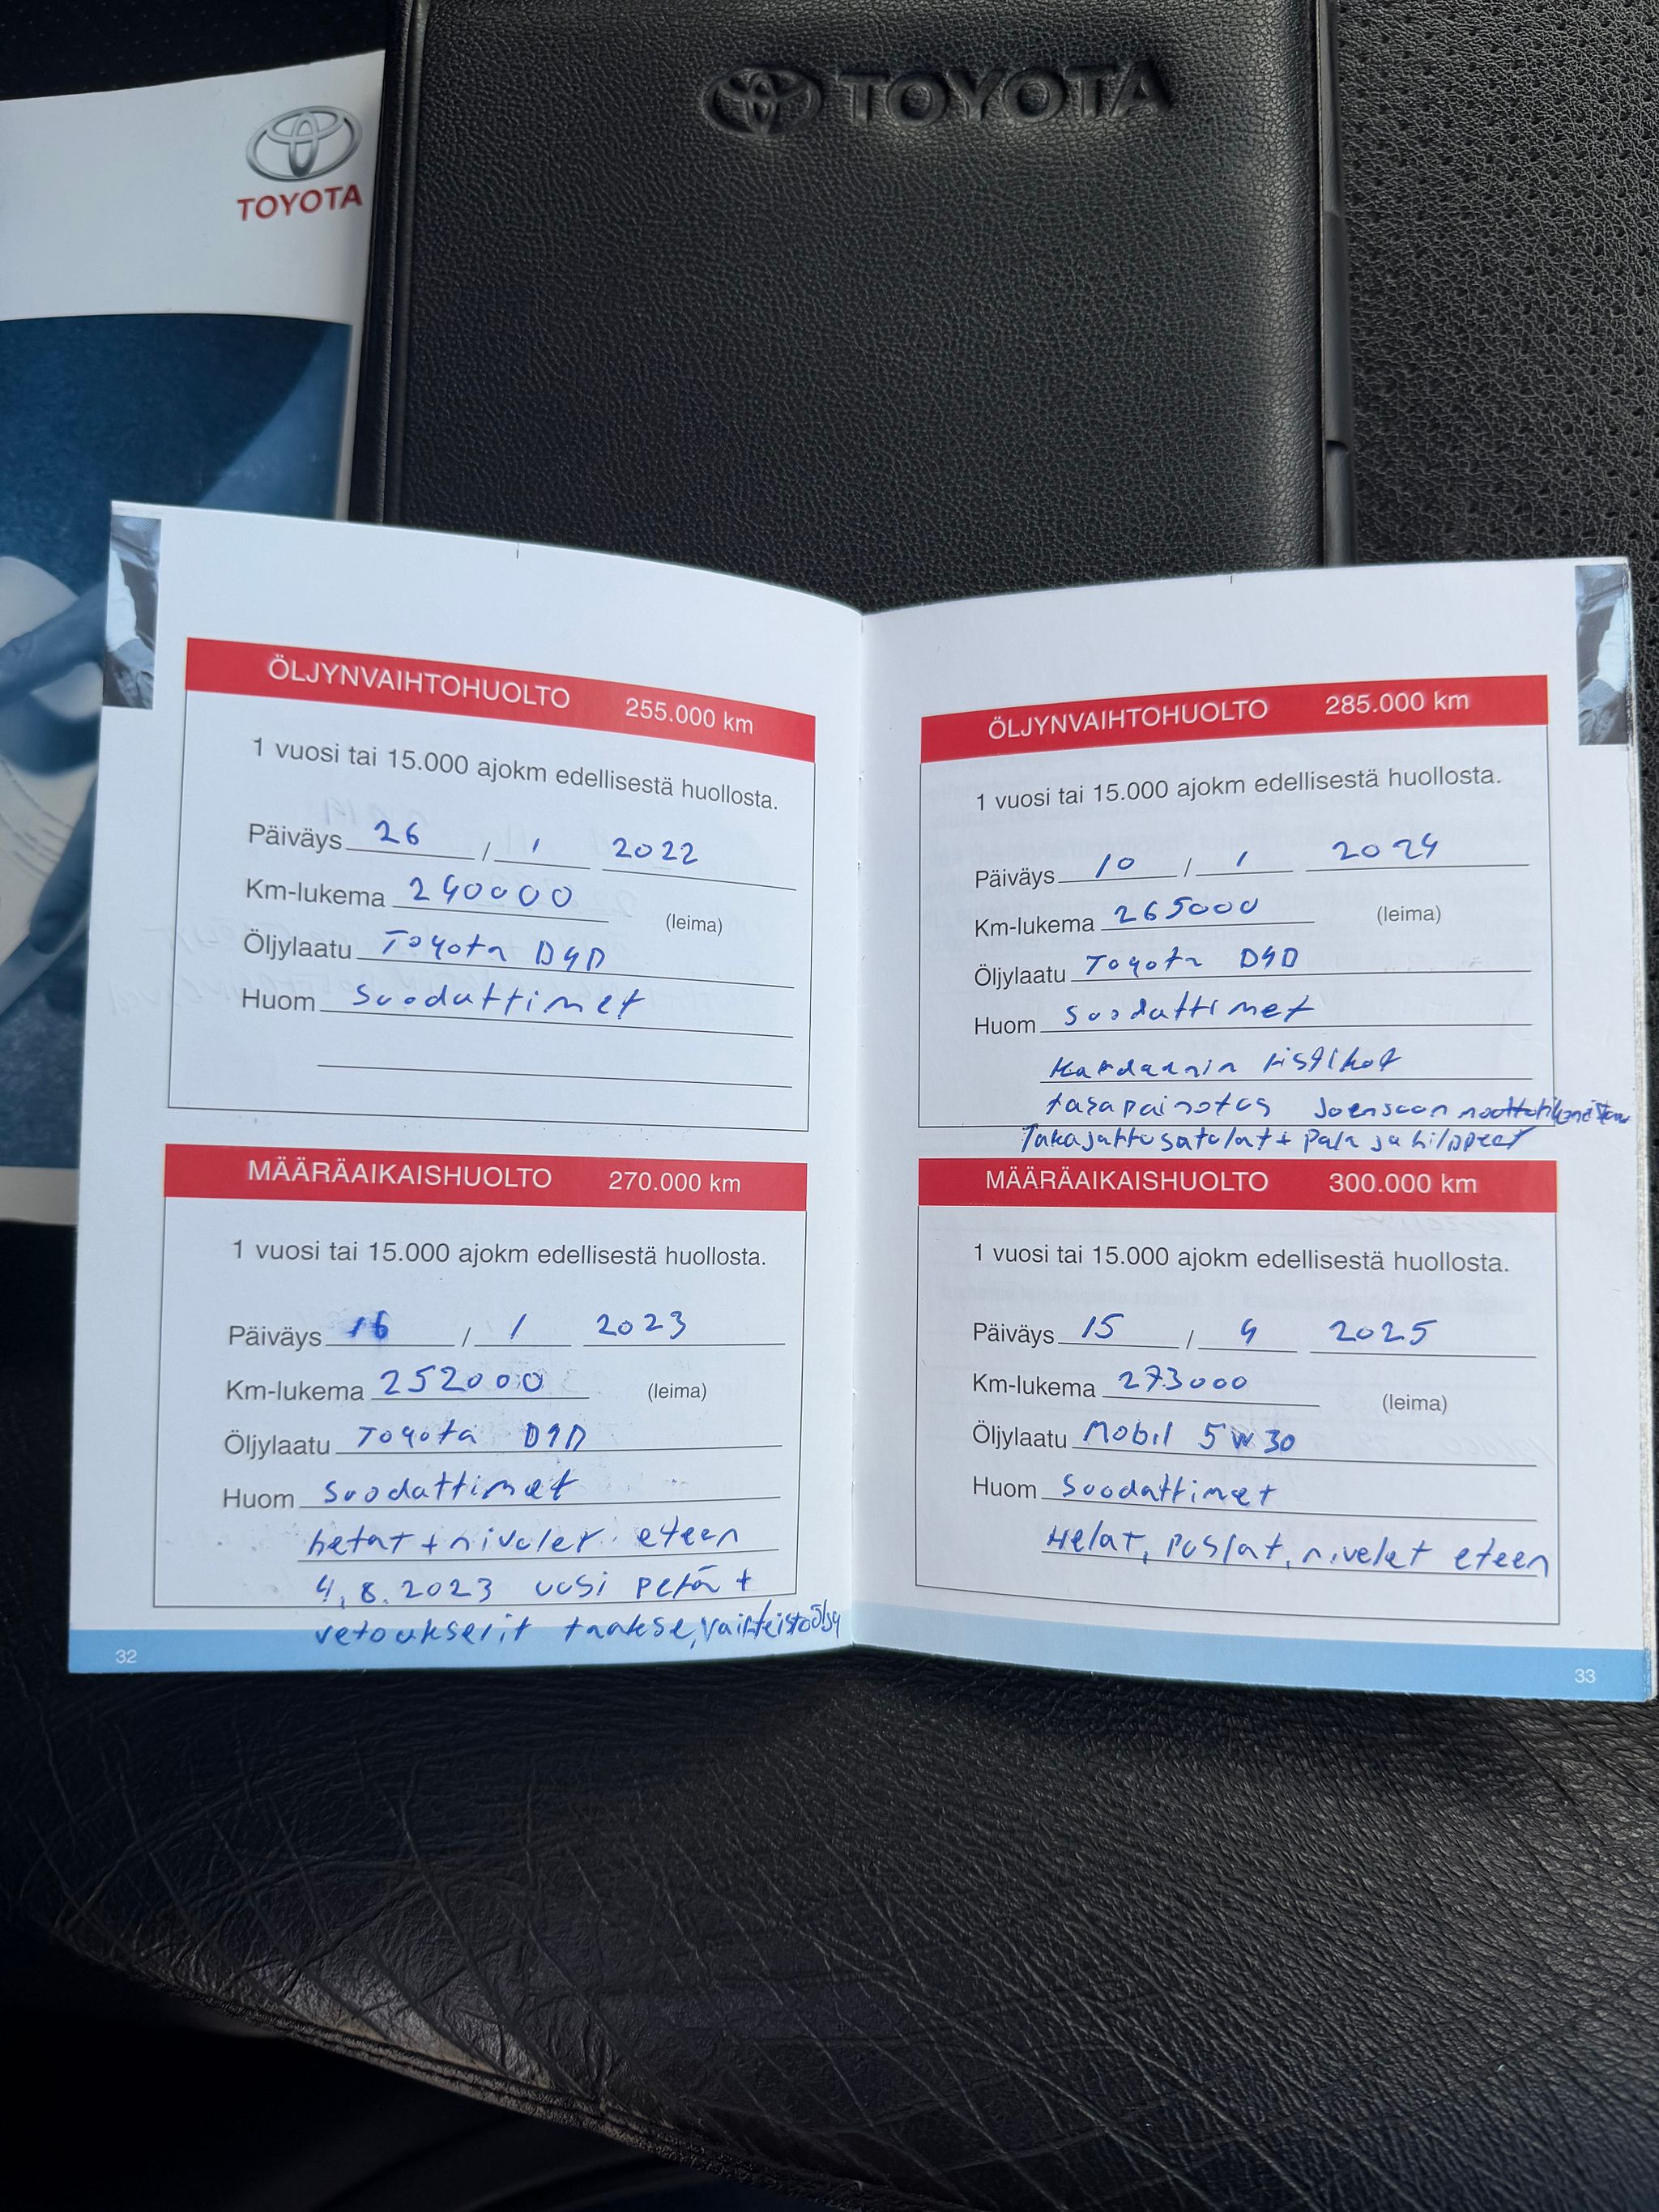 TOYOTA
TOYOTA
ÖLJYNVAIHTOHUOLTO 255.000 km
1 vuosi tai 15.000 ajokm edellisestä huollosta.
Päiväys 26 / 1 2022
Km-lukema 240000 (leima)
Öljylaatu Toyota D4D
Huom Suodattimet
MÄÄRÄAIKAISHUOLTO 270.000 km
1 vuosi tai 15.000 ajokm edellisestä huollosta.
Päiväys 16 / 1 2023
Km-lukema 252000 (leima)
Öljylaatu Toyota D4D
Huom suodattimet
helat + nivelet eteen
4.8.2023 uusi perä +
vetoakselit taakse, Vaihteistoöljy
32
ÖLJYNVAIHTOHUOLTO 285.000 km
1 vuosi tai 15.000 ajokm edellisestä huollosta.
Päiväys 10 / 1 2024
Km-lukema 265000 (leima)
Öljylaatu Toyota D4D
Huom suodattimet
Kardaanin ristikot
tasapainotus Joensuun
Takajarrusatulat + palat ja kilpeet
MÄÄRÄAIKAISHUOLTO 300.000 km
1 vuosi tai 15.000 ajokm edellisestä huollosta.
Päiväys 15 / 4 2025
Km-lukema 273000 (leima)
Öljylaatu Mobil 5W30
Huom Suodattimet
Helat, puslat, nivelet eteen
33